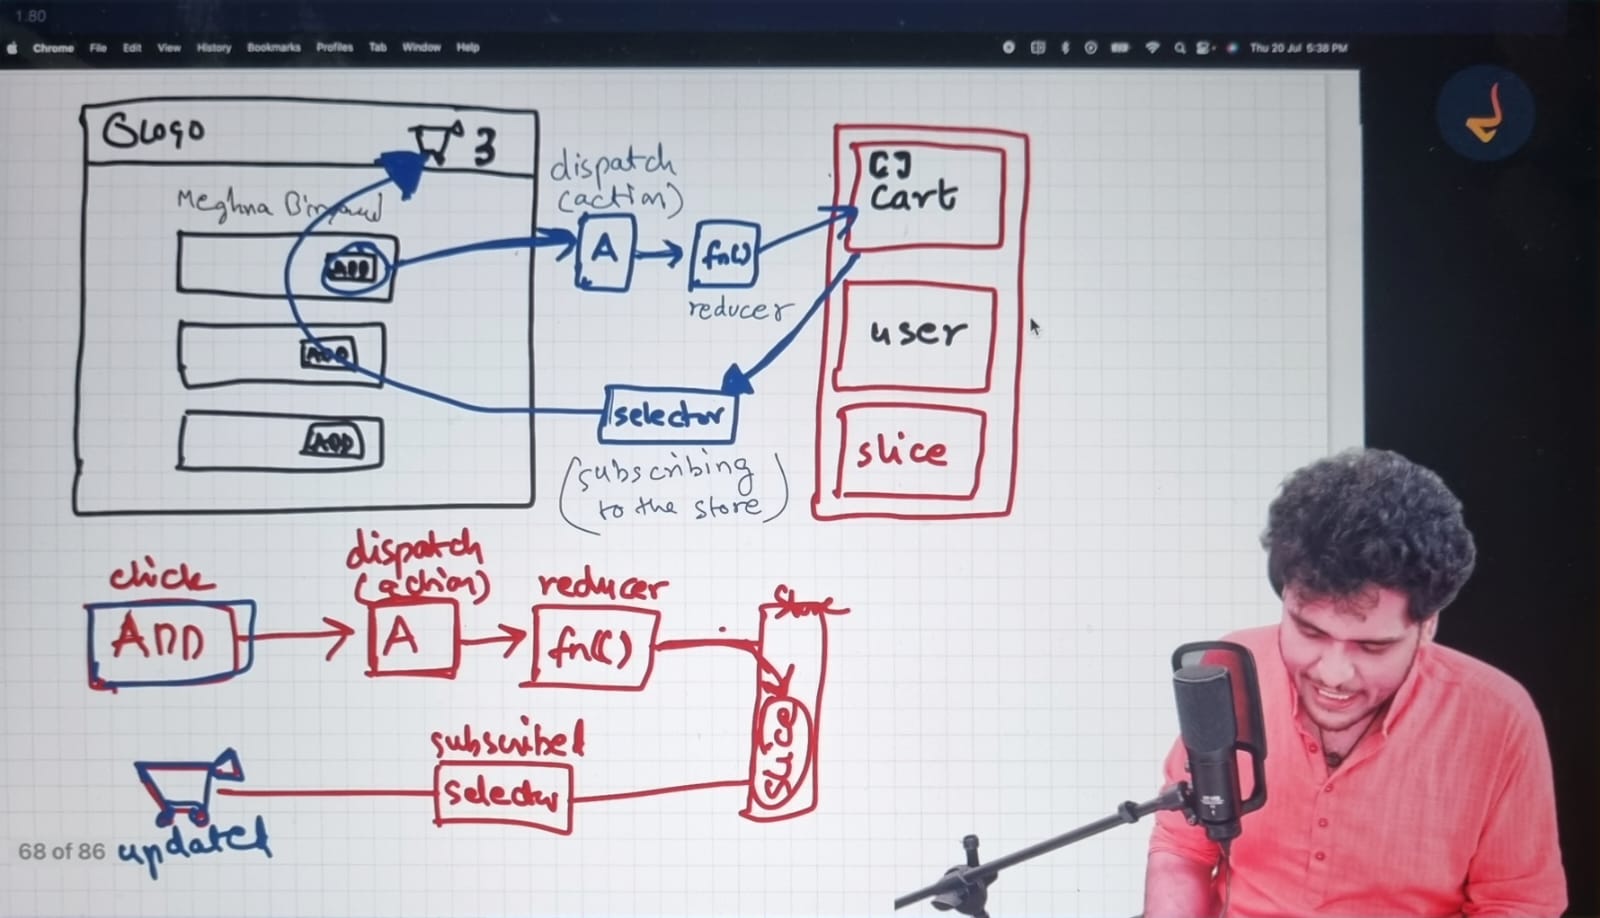 1.80
Chrome File Edit View History Bookmarks Profiles Tab Window Help
Thu 20 Jul 5:38 PM
Logo
3
Meghna
ADD
ADD
ADD
dispatch
(action)
A
fn()
reducer
selector
(subscribing
to the store)
[]
cart
user
slice
click
ADD
dispatch
(action)
A
reducer
fn()
Store
slice
subscribed
selector
updated
68 of 86